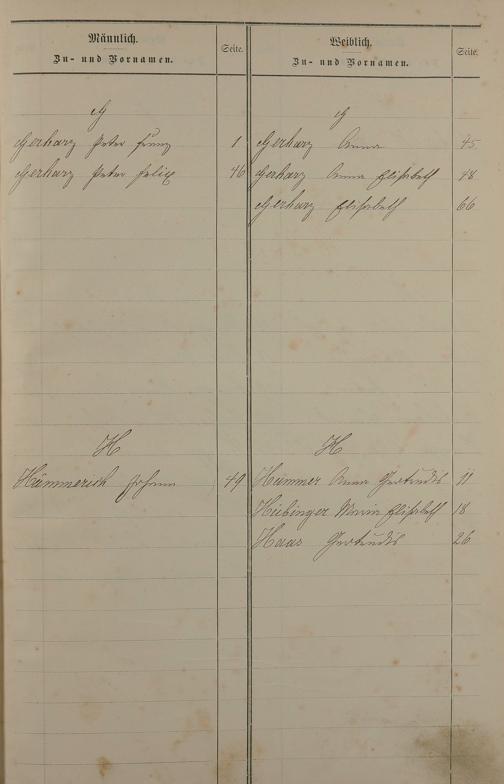 Männlich.
Zu- und Vornamen.
Seite.
G
Gerharz Peter Franz 1
Gerharz Peter Felix 46
H
Hümmerich Johann 49
Weiblich.
Zu- und Vornamen.
Seite.
G
Gerharz Anna 45
Gerharz Anna Elisabeth 48
Gerharz Elisabeth 66
H
Hümmer Anna Gertrudis 11
Hübinger Maria Elisabeth 18
Haas Gertrudis 26